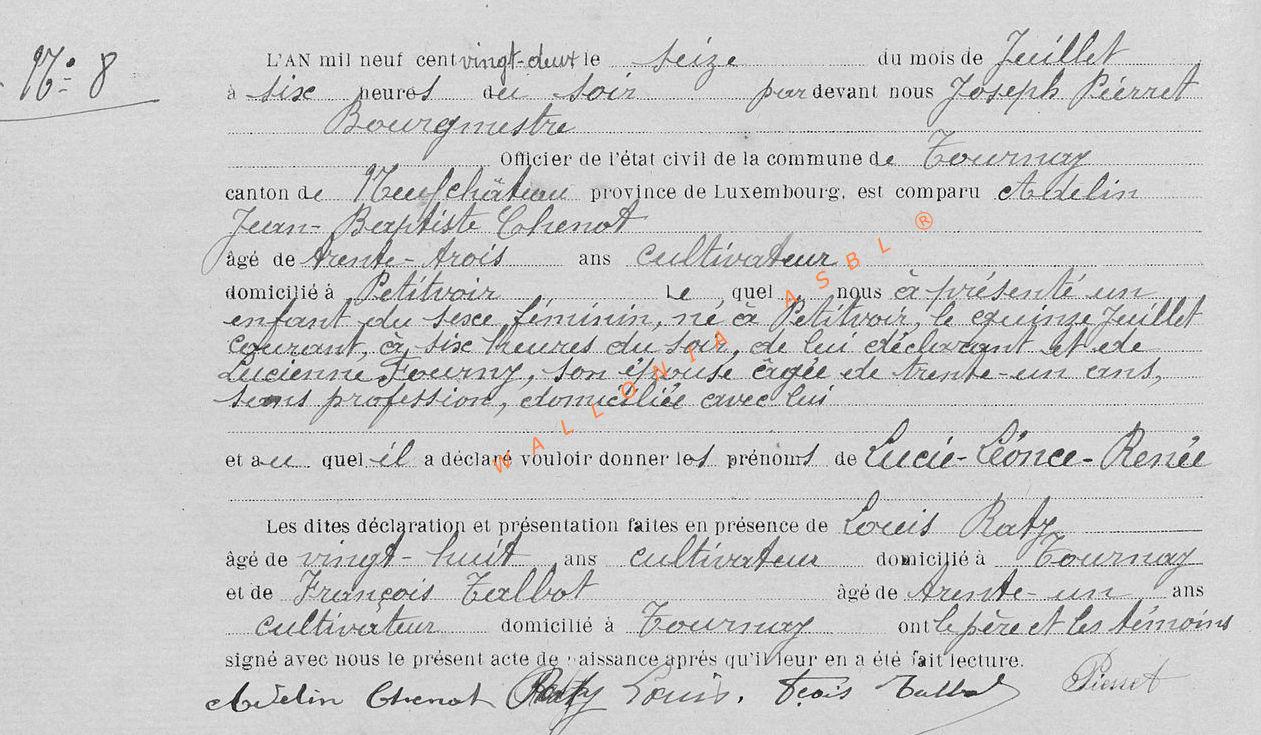 N° 8
L'AN mil neuf cent vingt-deux le seize du mois de Juillet
à six heures du soir par devant nous Joseph Pierret
Bourgmestre
Officier de l'état civil de la commune de Tournay
canton de Neufchâteau province de Luxembourg, est comparu Adelin
Jean-Baptiste Chenot
âgé de trente-trois ans cultivateur
domicilié à Petitvoir Le quel nous à présenté un
enfant du sexe féminin, né à Petitvoir, le quinze Juillet
courant, à six heures du soir, de lui déclarant et de
Lucienne Fourny, son épouse âgée de trente-un ans,
sans profession, domiciliée avec lui
et au quel il a déclaré vouloir donner les prénoms de Lucie-Léonce-Renée
Les dites déclaration et présentation faites en présence de Louis Raty
âgé de vingt-huit ans cultivateur domicilié à Tournay
et de François Talbot âgé de trente-un ans
cultivateur domicilié à Tournay ont le père et les témoins
signé avec nous le présent acte de naissance après qu'il leur en a été fait lecture.
Adelin Chenot Raty Louis. Fçois Talbot Pierret
WALLONIA ASBL ®